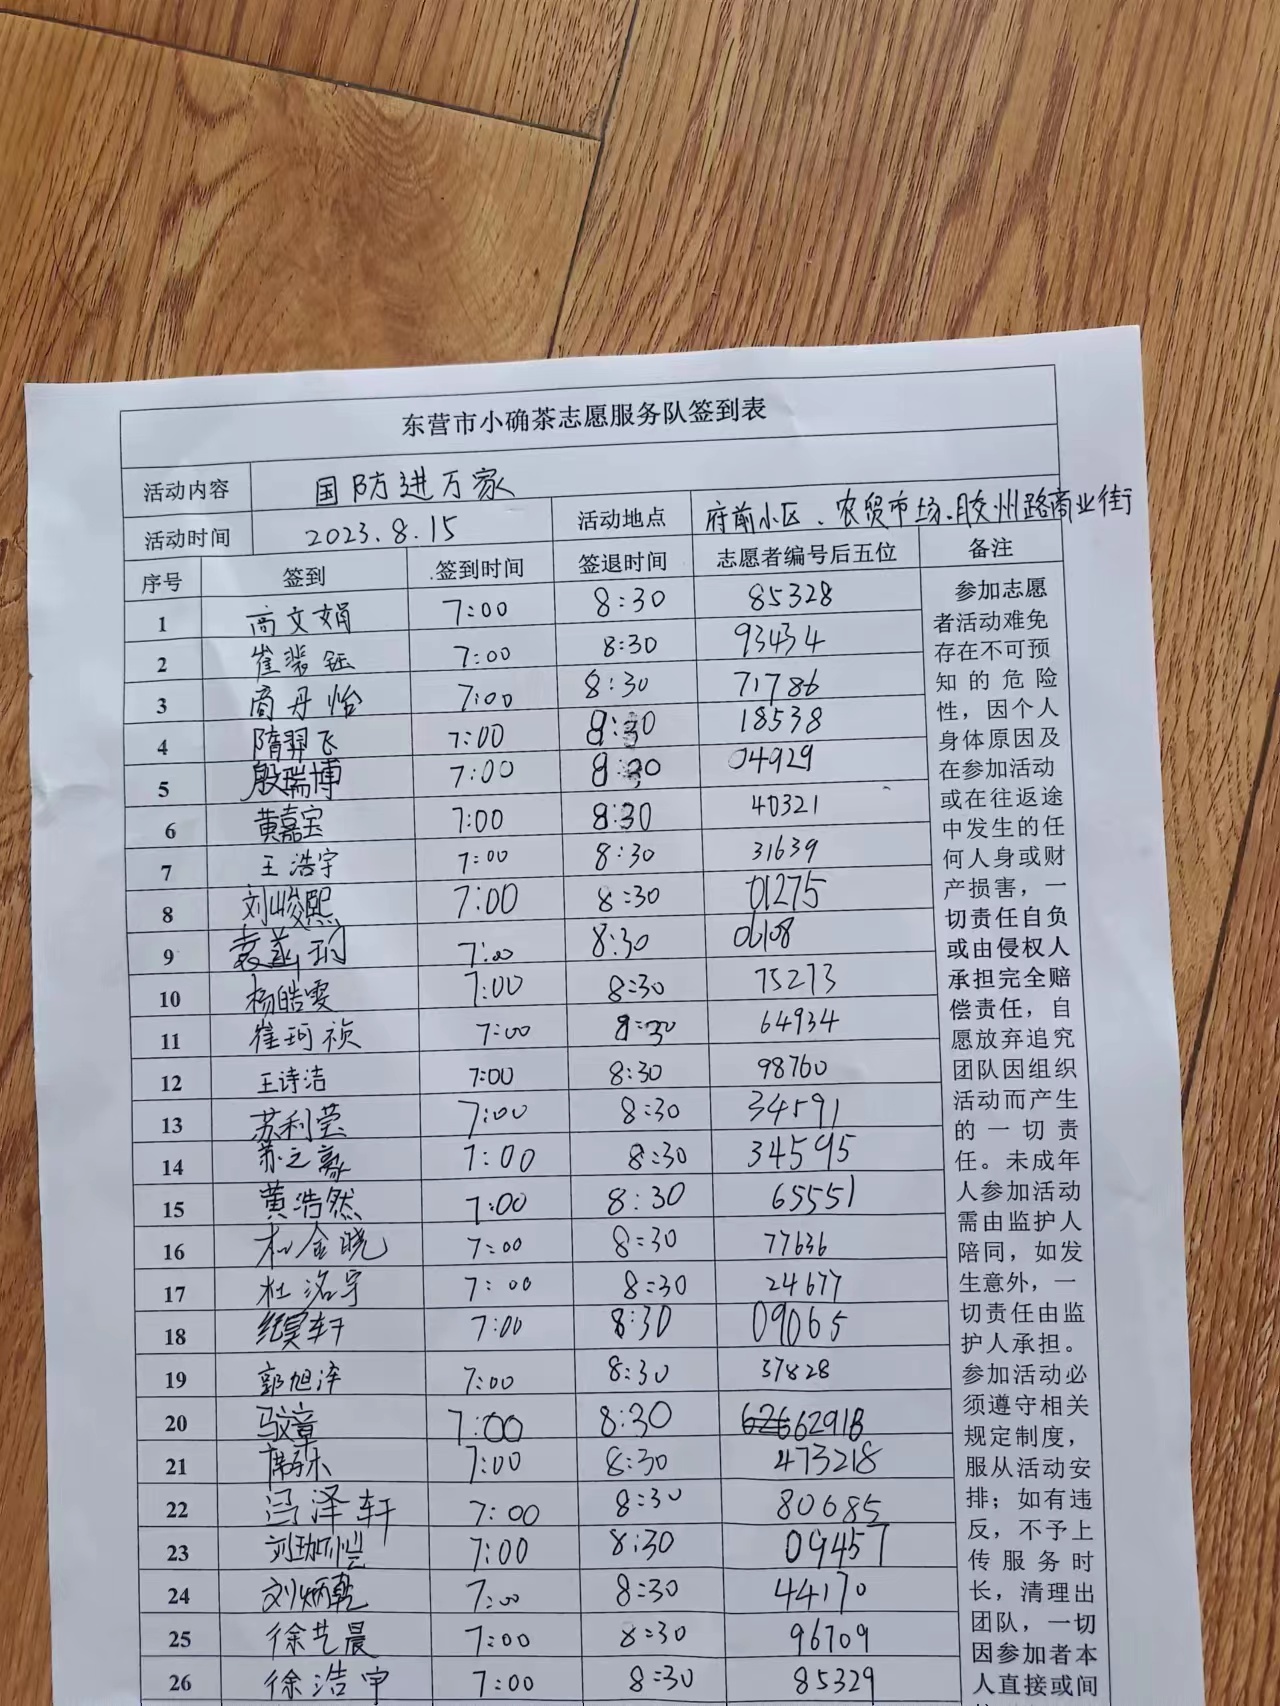 东营市小确茶志愿服务队签到表
活动内容 国防进万家
活动时间 2023.8.15 活动地点 府前小区、农贸市场、胶州路商业街
序号 签到 签到时间 签退时间 志愿者编号后五位 备注
1 商文娟 7:00 8:30 85328
2 崔裴钰 7:00 8:30 93434
3 商丹怡 7:00 8:30 71786
4 隋羿飞 7:00 8:30 18538
5 殷瑞博 7:00 8:30 04929
6 黄嘉宝 7:00 8:30 40321
7 王浩宇 7:00 8:30 31639
8 刘峻熙 7:00 8:30 01275
9 袁 7:00 8:30 06108
10 杨皓雯 7:00 8:30 75273
11 崔珂祯 7:00 8:30 64934
12 王诗洁 7:00 8:30 98760
13 苏利莹 7:00 8:30 34591
14 苏之豪 7:00 8:30 34595
15 黄浩然 7:00 8:30 65551
16 金晓 7:00 8:30 77636
17 杜洺宇 7:00 8:30 24677
18 纪昊轩 7:00 8:30 09065
19 郭旭泽 7:00 8:30 37828
20 马文章 7:00 8:30 62918
21 7:00 8:30 473218
22 冯泽轩 7:00 8:30 80685
23 刘珈恺 7:00 8:30 09457
24 刘炳乾 7:00 8:30 44170
25 徐艺晨 7:00 8:30 96709
26 徐浩宇 7:00 8:30 85329
参加志愿
者活动难免
存在不可预
知的危险
性，因个人
身体原因及
在参加活动
或在往返途
中发生的任
何人身或财
产损害，一
切责任自负
或由侵权人
承担完全赔
偿责任，自
愿放弃追究
团队因组织
活动而产生
的一切责
任。未成年
人参加活动
需由监护人
陪同，如发
生意外，一
切责任由监
护人承担。
参加活动必
须遵守相关
规定制度，
服从活动安
排；如有违
反，不予上
传服务时
长，清理出
团队，一切
因参加者本
人直接或间